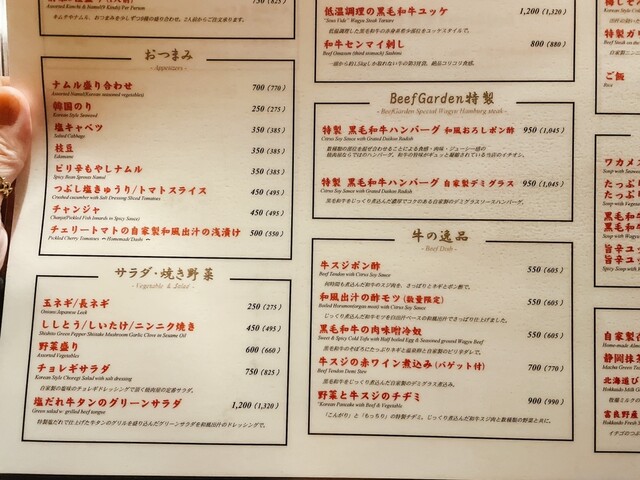 Assorted Kimchi & Namul/8 Kinds) Per Person
750 (825)
おつまみ
- Appetizers -
ナムル盛り合わせ 700 (770)
Assorted Namul(Korean seasoned vegetables)
韓国のり 250 (275)
Korean Style Seaweed
塩キャベツ 350 (385)
Salted Cabbage
枝豆 350 (385)
Edamame
ピリ辛もやしナムル 350 (385)
Spicy Bean Sprouts Namul
つぶし塩きゅうり/トマトスライス 450 (495)
Crushed cucumber with Salt Dressing/Sliced Tomatoes
チャンジャ 450 (495)
Changja(Pickled Fish innards in Spicy Sauce)
チェリートマトの自家製和風出汁の浅漬け 500 (550)
Pickled Cherry Tomatoes ー Homemade/Dashi ー
サラダ・焼き野菜
- Vegetable & Salad -
玉ネギ/長ネギ 250 (275)
Onions/Japanese Leek
ししとう/しいたけ/ニンニク焼き 450 (495)
Shishito Green Pepper/Shiitake Mushroom/Garlic Clove in Sesame Oil
野菜盛り 600 (660)
Assorted Vegetables
チョレギサラダ 750 (825)
Korean Style Choregi Salad with salt dressing
自家製の塩味のチョレギドレッシングで頂く焼肉屋の定番サラダ。
塩だれ牛タンのグリーンサラダ 1,200 (1,320)
Green salad w/ grilled beef tongue
特製塩だれで仕上げた牛タンのグリルを盛り込んだグリーンサラダを和風出汁のドレッシングで。
低温調理の黒毛和牛ユッケ 1,200 (1,320)
"Sous Vide" Wagyu Steak Tartare
低温調理した黒毛和牛の赤身希少部位をユッケスタイルで。
和牛センマイ刺し 800 (880)
Beef Omasum (third stomach) Sashimi
一頭から約1.5kgしか取れない牛の第3胃袋、絶品コリコリ食感。
BeefGarden特製
- BeefGarden Special Wagyu Hamburg steak -
特製 黒毛和牛ハンバーグ 和風おろしポン酢 950 (1,045)
Citrus Soy Sauce with Grated Daikon Radish
数種類の部位を混ぜ合わせることによる食感・肉味・ジューシー感の
焼肉屋ならではのハンバーグ。和牛の旨味がギュッと凝縮されている当店のイチオシ。
特製 黒毛和牛ハンバーグ 自家製デミグラス 950 (1,045)
Citrus Soy Sauce with Grated Daikon Radish
黒毛和牛をじっくり煮込んだ濃厚でコクのある自家製のデミグラスソースハンバーグ。
牛の逸品
- Beef Dish -
牛スジポン酢 550 (605)
Beef Tendon with Citrus Soy Sauce
何時間も煮込んだ和牛のスジ肉を、さっぱりとネギとポン酢で。
和風出汁の酢モツ(数量限定) 550 (605)
Boiled Horumon(organ meat) with Citrus Soy Sauce
じっくり煮込んだ和牛モツを白出汁ベースの和風出汁でさっぱり仕上げました。
黒毛和牛の肉味噌冷奴 550 (605)
Sweet & Spicy Cold Tofu with Half boiled Egg & Seasoned ground Wagyu Beef
黒毛和牛のそぼろにたっぷりネギと温泉卵と自家製のピリ辛ダレで。
牛スジの赤ワイン煮込み(バゲット付) 700 (770)
Beef Tendon Demi Stew
黒毛和牛をじっくり煮込んだ自家製のデミグラス煮込み。
野菜と牛スジのチヂミ 900 (990)
"Korean Pancake with Beef & Vegetable
「こんがり」と「もっちり」の特製チヂミ。じっくり煮込んだ和牛スジ肉と数種類の野菜と共に。
ご飯
Rice
ワカメ
Soup with Seaweed
たっぷ
たっぷ
黒毛
黒毛
旨辛ユ
旨辛ユ
自家製杏
静岡抹茶
北海道び
富良野産